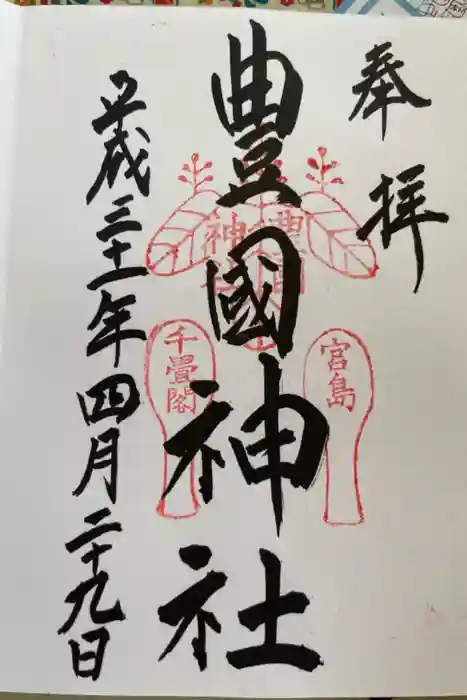 奉拝
豊國神社
豊国
神社
宮島
千畳閣
平成三十一年四月二十九日